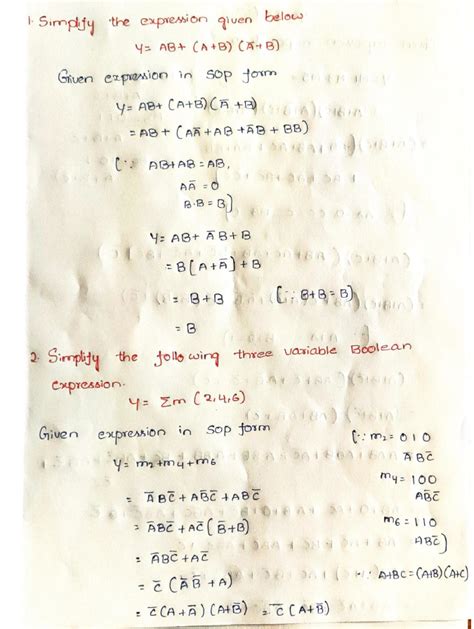 1. Simplify the expression given below
Y= AB+ (A+B) (Ā+B)
Given expression in SOP form
Y= AB+ (A+B)(Ā +B)
= AB + (AĀ+AB+ĀB+BB)
[∵ AB+AB=AB,
AĀ =0
B·B=B]
Y= AB+ ĀB+B
= B[A+Ā]+B
= B+B [∵ B+B=B]
= B
2. Simplify the following three variable Boolean
expression.
Y= Σm (2,4,6)
Given expression in SOP form
Y= m2+m4+m6
[∵ m2=010
ĀBC̄
m4=100
AB̄C̄
m6=110
ABC̄]
= ĀBC̄+AB̄C̄+ABC̄
= ĀBC̄+AC̄(B̄+B)
= ĀBC̄+AC̄
= C̄(ĀB+A) ∵ A+BC=(A+B)(A+C)
= C̄(A+Ā)(A+B) = C̄(A+B)